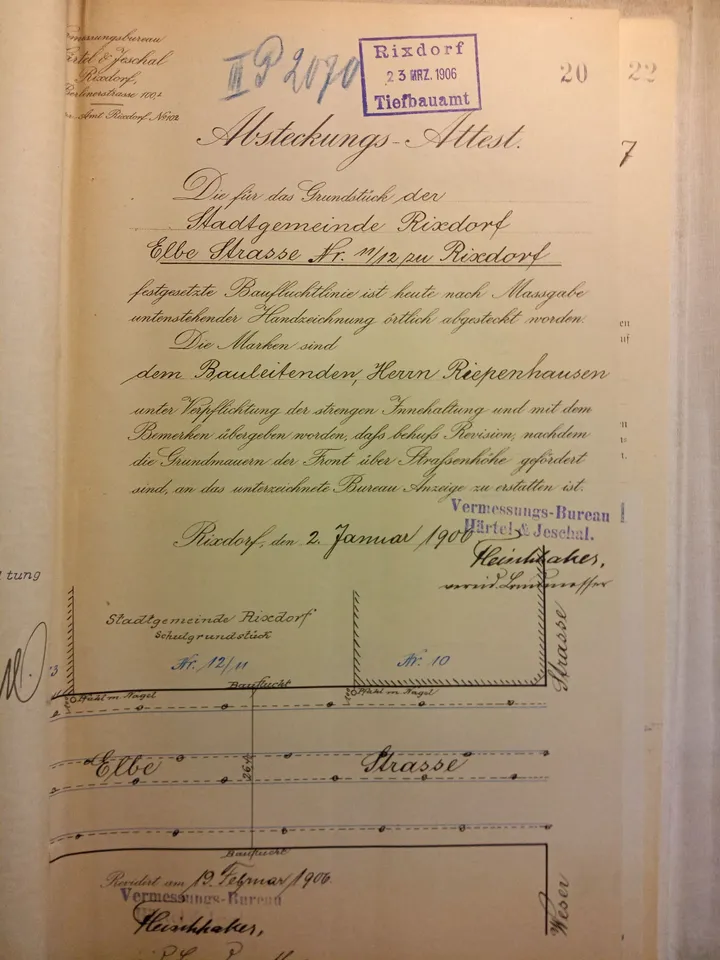 Härtel & Jeschal
Rixdorf,
Berlinerstrasse 100.
Amt Rixdorf No 102
III P 2070
Rixdorf
23 MRZ. 1906
Tiefbauamt
20
22
7
Absteckungs-Attest.
Die für das Grundstück der
Stadtgemeinde Rixdorf
Elbe Strasse Nr. 11/12 zu Rixdorf
festgesetzte Baufluchtlinie ist heute nach Massgabe
untenstehender Handzeichnung örtlich abgesteckt worden.
Die Marken sind
dem Bauleitenden, Herrn Riepenhausen
unter Verpflichtung der strengen Innehaltung und mit dem
Bemerken übergeben worden, daſs behufs Revision, nachdem
die Grundmauern der Front über Straſsenhöhe gefördert
sind, an das unterzeichnete Bureau Anzeige zu erstatten ist.
Rixdorf, den 2. Januar 1906
Vermessungs-Bureau
Härtel & Jeschal.
vereid. Landmesser
tung
Stadtgemeinde Rixdorf
Schulgrundstück
Nr. 12/11
Nr. 10
Strasse
Bauflucht
Pfahl m. Nagel
Pfahl m. Nagel
Elbe Strasse
Bauflucht
Weser
Revidirt am 19. Februar 1906.
Vermessungs-Bureau